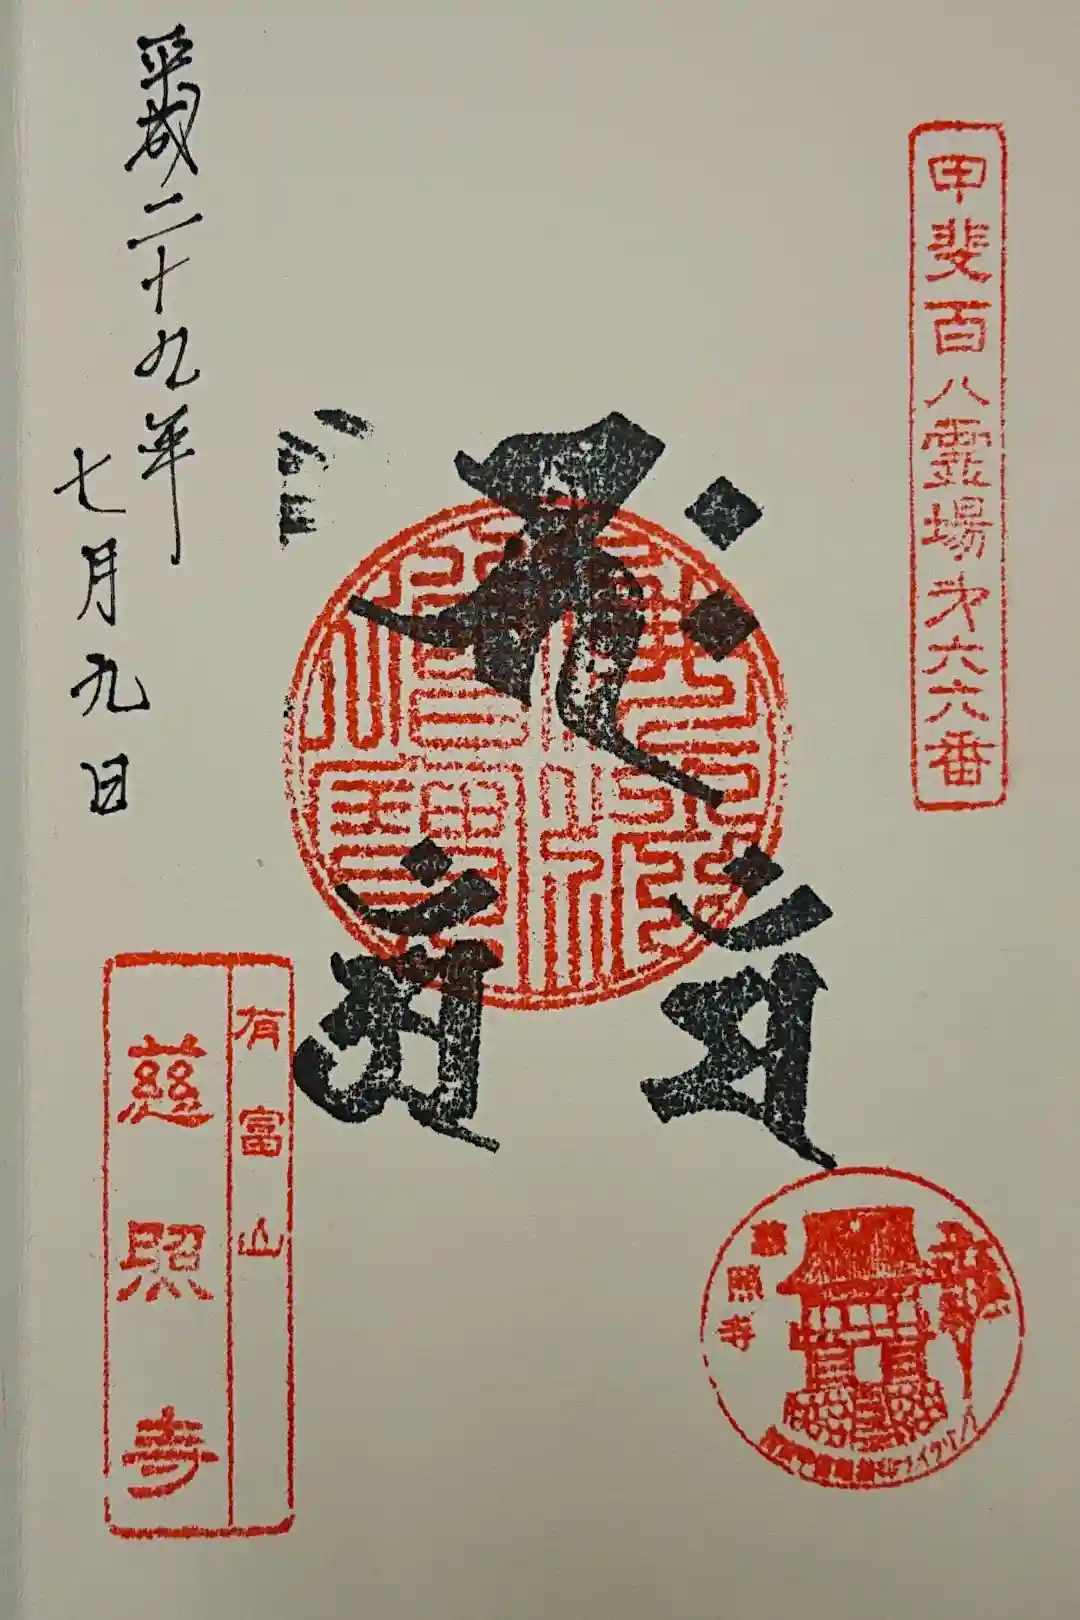 甲斐百八霊場才六六番
平成二十九年
七月九日
佛法僧寳
有富山
慈照寺
慈照寺